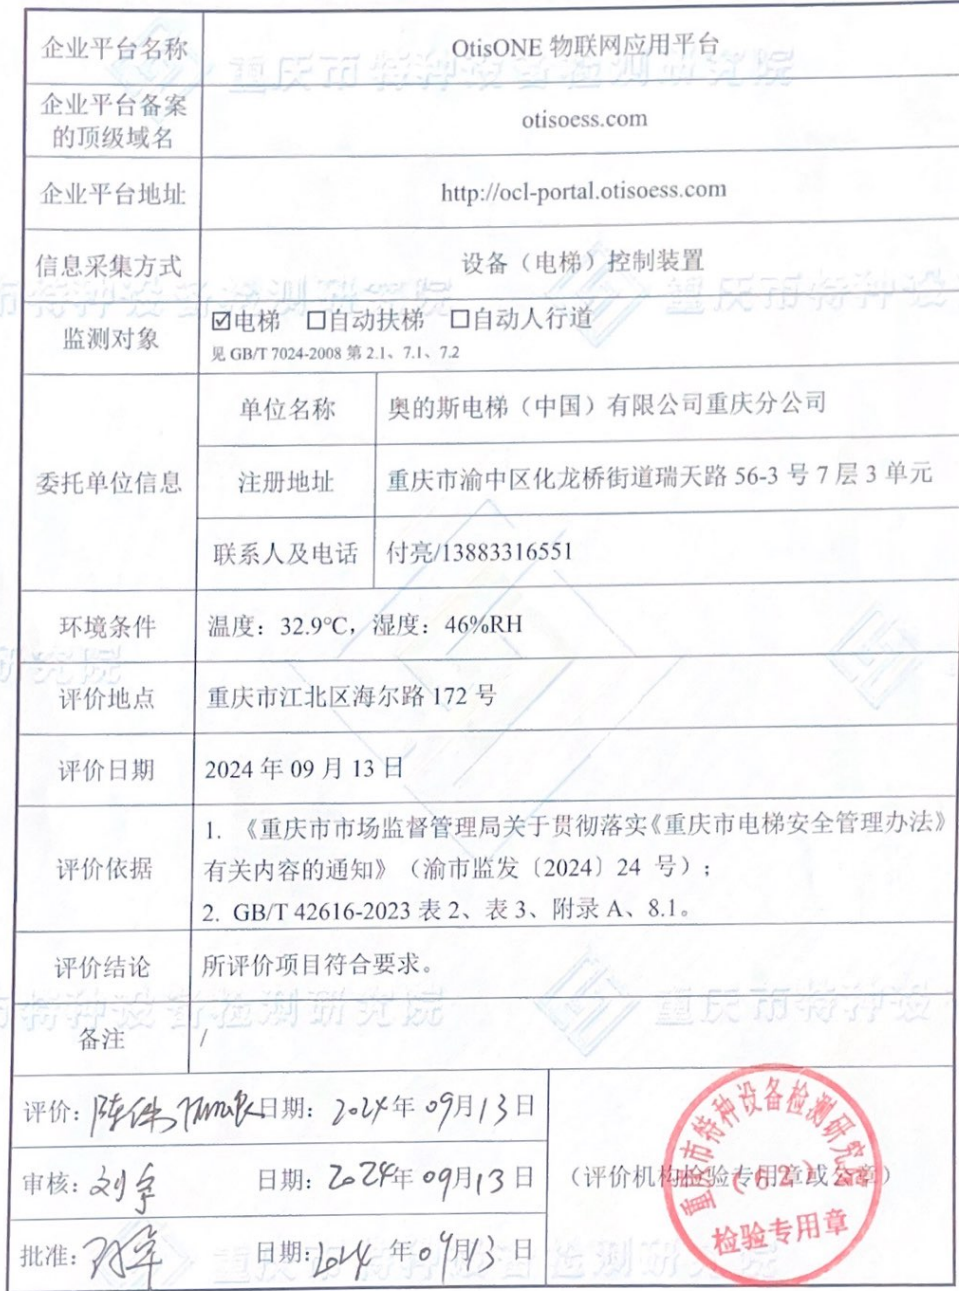 企业平台名称
OtisONE 物联网应用平台
企业平台备案
的顶级域名
otisoess.com
企业平台地址
http://ocl-portal.otisoess.com
信息采集方式
设备（电梯）控制装置
监测对象
☑电梯 ☐自动扶梯 ☐自动人行道
见 GB/T 7024-2008 第 2.1、7.1、7.2
委托单位信息
单位名称
奥的斯电梯（中国）有限公司重庆分公司
注册地址
重庆市渝中区化龙桥街道瑞天路 56-3 号 7 层 3 单元
联系人及电话
付亮/13883316551
环境条件
温度：32.9℃，湿度：46%RH
评价地点
重庆市江北区海尔路 172 号
评价日期
2024 年 09 月 13 日
评价依据
1. 《重庆市市场监督管理局关于贯彻落实《重庆市电梯安全管理办法》
有关内容的通知》（渝市监发〔2024〕24 号）；
2. GB/T 42616-2023 表 2、表 3、附录 A、8.1。
评价结论
所评价项目符合要求。
备注
/
评价： 日期：2024年 09月13日
审核： 日期：2024年 09月13日
批准： 日期：2024 年 09月13日
（评价机构检验专用章或公章）
重庆市特种设备检测研究院
（62）
检验专用章
重庆市特种设备检测研究院